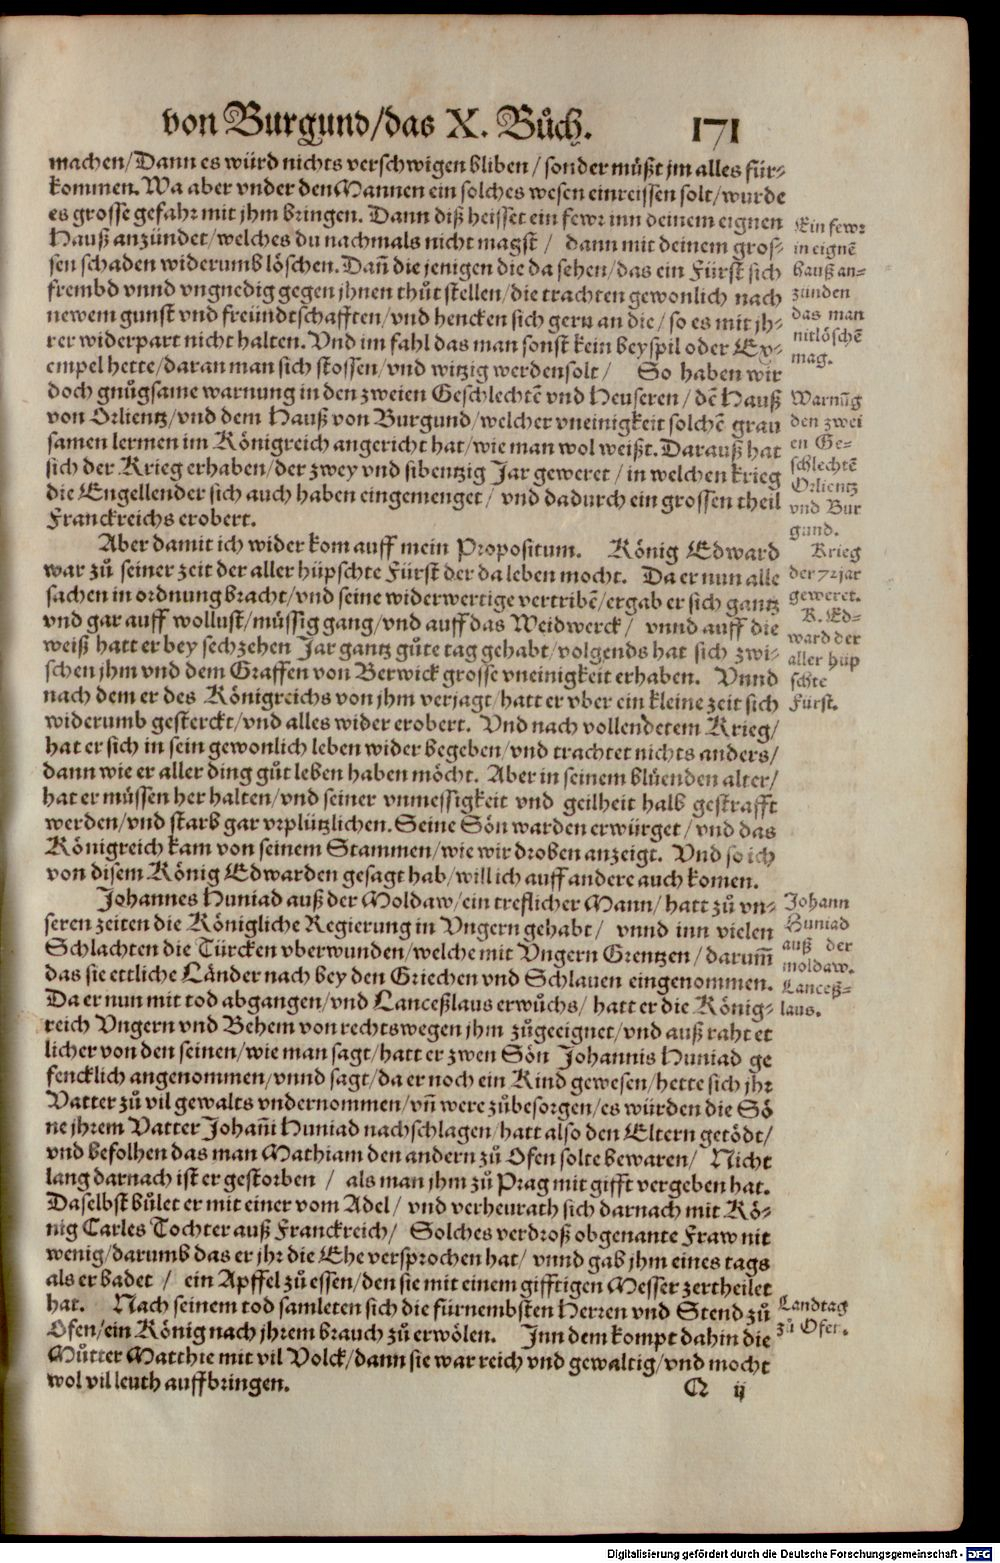 von Burgund/das X. Bůch. 171
machen/Dann es würd nichts verschwigen bliben/sonder müßt jm alles für-
kommen. Wa aber vnder den Mannen ein solches wesen einreissen solt/wurde
es grosse gefahr mit jhm bringen. Dann diß heisset ein fewr inn deinem eignen
Hauß anzündet/welches du nachmals nicht magst / dann mit deinem gros-
sen schaden widerumb löschen. Dañ die jenigen die da sehen/das ein Fürst sich
frembd vnnd vngnedig gegen jhnen thůt stellen/die trachten gewonlich nach
newem gunst vnd freündtschafften/vnd hencken sich gern an die/so es mit jh-
rer widerpart nicht halten. Vnd im fahl das man sonst kein beyspil oder Ex-
empel hette/daran man sich stossen/vnd witzig werden solt/ So haben wir
doch gnůgsame warnung in den zweien Geschlechtẽ vnd Heuseren/dẽ Hauß
von Orlientz/vnd dem Hauß von Burgund/welcher vneinigkeit solchẽ grau
samen lermen im Königreich angericht hat/wie man wol weißt. Darauß hat
sich der Krieg erhaben/der zwey vnd sibentzig Jar geweret/in welchen krieg
die Engellender sich auch haben eingemenget/ vnd dadurch ein grossen theil
Franckreichs erobert.
Aber damit ich wider kom auff mein Propositum. König Edward
war zů seiner zeit der aller hüpschte Fürst der da leben mocht. Da er nun alle
sachen in ordnung bracht/vnd seine widerwertige vertribẽ/ergab er sich gantz
vnd gar auff wollust/müssig gang/vnd auff das Weidwerck/ vnnd auff die
weiß hatt er bey sechzehen Jar gantz gůte tag gehabt/volgends hat sich zwi-
schen jhm vnd dem Graffen von Berwick grosse vneinigkeit erhaben. Vnnd
nach dem er des Königreichs von jhm verjagt/hatt er vber ein kleine zeit sich
widerumb gesterckt/vnd alles wider erobert. Vnd nach vollendetem Krieg/
hat er sich in sein gewonlich leben wider begeben/vnd trachtet nichts anders/
dann wie er aller ding gůt leben haben möcht. Aber in seinem blüenden alter/
hat er müssen her halten/vnd seiner vnmessigkeit vnd geilheit halb gestrafft
werden/vnd starb gar vrplützlichen. Seine Sön warden erwürget/vnd das
Königreich kam von seinem Stammen/wie wir droben anzeigt. Vnd so ich
von disem König Edwarden gesagt hab/will ich auff andere auch komen.
Johannes Huniad auß der Moldaw/ein treflicher Mann/hatt zů vn-
seren zeiten die Königliche Regierung in Vngern gehabt/ vnnd inn vielen
Schlachten die Türcken vberwunden/welche mit Vngern Grentzen/darum̃
das sie ettliche Länder nach bey den Griechen vnd Schlauen eingenommen.
Da er nun mit tod abgangen/vnd Lanceßlaus erwůchs/hatt er die König-
reich Vngern vnd Behem von rechtswegen jhm zůgeeignet/vnd auß raht et
licher von den seinen/wie man sagt/hatt er zwen Sön Johannis Huniad ge
fencklich angenommen/vnnd sagt/da er noch ein Kind gewesen/hette sich jhr
Vatter zů vil gewalts vndernommen/vñ were zůbesorgen/es würden die Sö
ne jhrem Vatter Johañi Huniad nachschlagen/hatt also den Eltern getödt/
vnd befolhen das man Mathiam den andern zů Ofen solte bewaren/ Nicht
lang darnach ist er gestorben / als man jhm zů Prag mit gifft vergeben hat.
Daselbst bůlet er mit einer vom Adel/ vnd verheurath sich darnach mit Kö-
nig Carles Tochter auß Franckreich/ Solches verdroß obgenante Fraw nit
wenig/darumb das er jhr die Ehe versprochen hat/ vnnd gab jhm eines tags
als er badet / ein Apffel zů essen/den sie mit einem gifftigen Messer zertheilet
hat. Nach seinem tod samleten sich die fürnembsten Herren vnd Stend zů
Ofen/ein König nach jhrem brauch zů erwölen. Inn dem kompt dahin die
Můtter Matthie mit vil Volck/dann sie war reich vnd gewaltig/vnd mocht
wol vil leuth auffbringen.
Q ij
Ein fewr
in eignẽ
hauß an-
zünden
das man
nit löschẽ
mag.
Warnũg
den zwei
en Ge-
schlechtẽ
Orlientz
vnd Bur
gund.
Krieg
der 72 jar
geweret.
K. Ed-
ward der
aller hüp
schte
Fürst.
Johann
Huniad
auß der
moldaw.
Lanceß-
laus.
Landtag
zů Ofen.
Digitalisierung gefördert durch die Deutsche Forschungsgemeinschaft - DFG